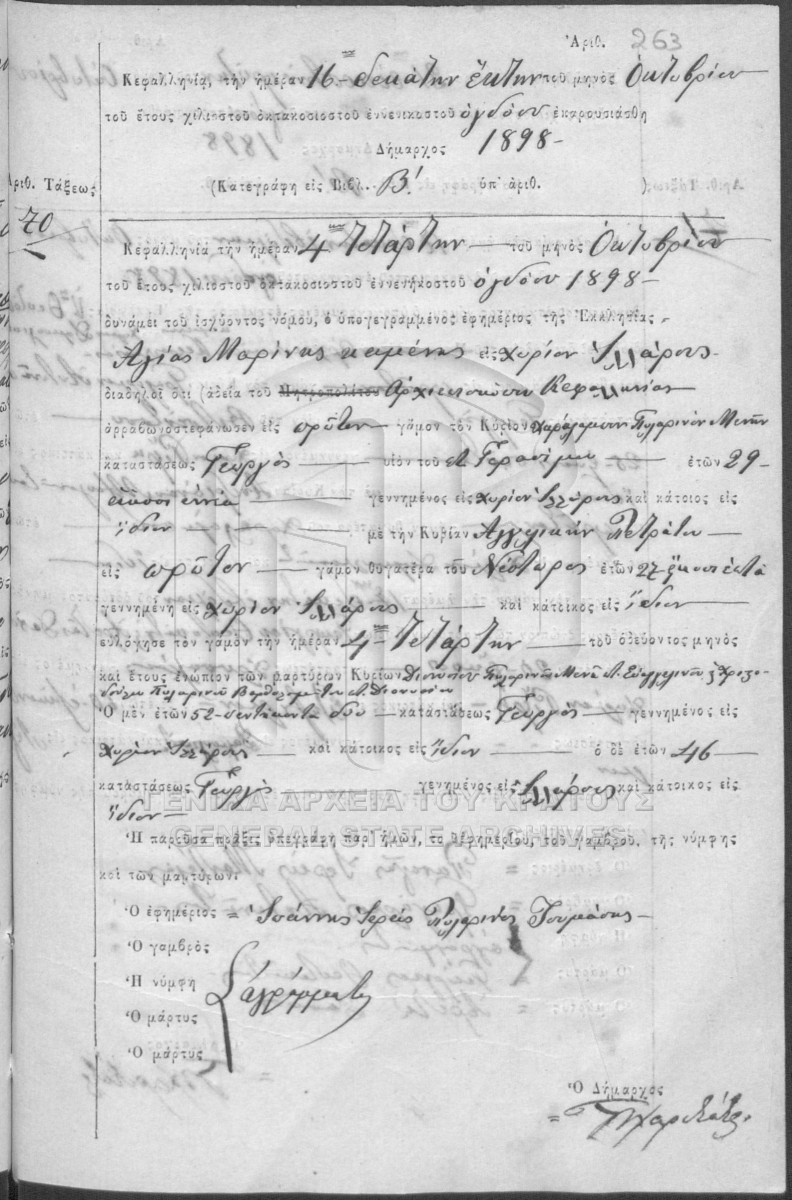 Ἀριθ. 263
Κεφαλληνία, τὴν ἡμέραν 16 - δεκάτην ἕκτην τοῦ μηνὸς Ὀκτωβρίου
τοῦ ἔτους χιλιοστοῦ ὀκτακοσιοστοῦ ἐννενικοστοῦ ὀγδόου ἐπαρουσιάσθη
Δήμαρχος 1898 -
Ἀριθ. Τάξεως (Κατεγράφη εἰς Βιβλ. Β! ὑπ' ἀριθ. )
70
Κεφαλληνία τὴν ἡμέραν 4 Τετάρτην — τοῦ μηνὸς Ὀκτωβρίου
τοῦ ἔτους χιλιοστοῦ ὀκτακοσιοστοῦ ἐννενήκοστοῦ ὀγδόου 1898 -
δυνάμει τοῦ ἰσχύοντος νόμου, ὁ ὑπογεγραμμένος ἐφημέριος τῆς Ἐκκλησίας
Ἁγίας Μαρίνης καμένης εἰς χωρίον
διαδηλοῖ ὅτι (ἀδεία τοῦ Μητροπολίτου Ἀρχιεπισκόπου Κεφαλληνίας
ἀρραβωνοστεφάνωσεν εἰς πρῶτον — γάμον τὸν Κύριον Χαράλαμπον Πυλαρινὸν
καταστάσεως Γεωργὸς — υἱὸν τοῦ Γερασίμου — ἐτῶν 29 -
εἴκοσι ἐννέα — γεννημένος εἰς χωρίον καὶ κάτοιος εἰς
ἴδιον — μὲ τὴν Κυρίαν Ἀγγελικὴν Πετράτου —
εἰς πρῶτον — γάμον θυγατέρα τοῦ Νέστορος ἐτῶν 27 εἴκοσι ἑπτά
γεννημένη εἰς χωρίον — καὶ κάτοικος εἰς ἴδιον —
εὐλόγησε τὸν γάμον τὴν ἡμέραν 4 Τετάρτην — τοῦ ὁδεύοντος μηνὸς
καὶ ἔτους ἐνώπιον τῶν μαρτύρων Κυρίων Διονυσίου Πυλαρινοῦ
Πυλαρινοῦ Διονυσίου
Ὁ μὲν ἐτῶν 52 - πεντήκοντα δύο — καταστάσεως Γεωργὸς — γεννημένος εἰς
χωρίον — καὶ κάτοικος εἰς ἴδιον — ὁ δὲ ἐτῶν 46 —
καταστάσεως Γεωργὸς — γεννημένος εἰς καὶ κάτοικος εἰς
ἴδιον —
ΓΕΝΙΚΑ ΑΡΧΕΙΑ ΤΟΥ ΚΡΑΤΟΥΣ
GENERAL STATE ARCHIVES
Ἡ παροῦσα πράξις ὑπεγράφη παρ' ἡμῶν, τὸ θ ἐφημερίου, τοῦ γαμβροῦ, τῆς νύμφης
καὶ τῶν μαρτύρων.
Ὁ ἐφημέριος = Ἰωάννης Ἱερεὺς Πυλαρινὸς
Ὁ γαμβρὸς
Ἡ νύμφη ἀγράμματοι
Ὁ μάρτυς
Ὁ μάρτυς
Ὁ Δήμαρχος